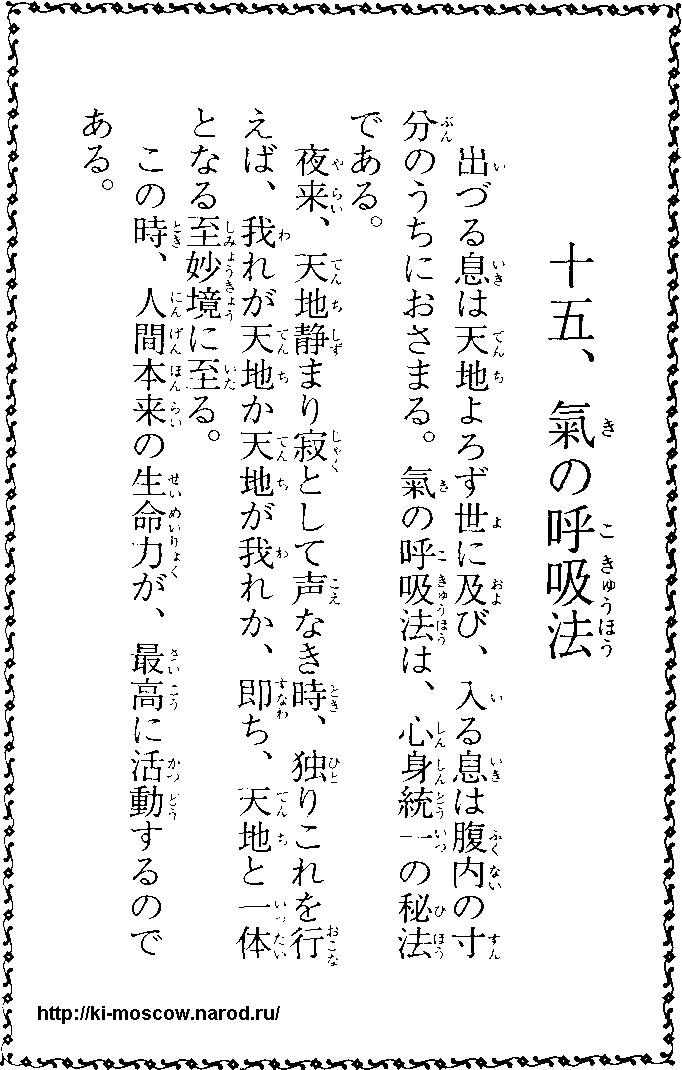 十五、氣の呼吸法
出づる息は天地よろず世に及び、入る息は腹内の寸
分のうちにおさまる。氣の呼吸法は、心身統一の秘法
である。
夜来、天地静まり寂として声なき時、独りこれを行
えば、我れが天地か天地が我れか、即ち、天地と一体
となる至妙境に至る。
この時、人間本来の生命力が、最高に活動するので
ある。
http://ki-moscow.narod.ru/